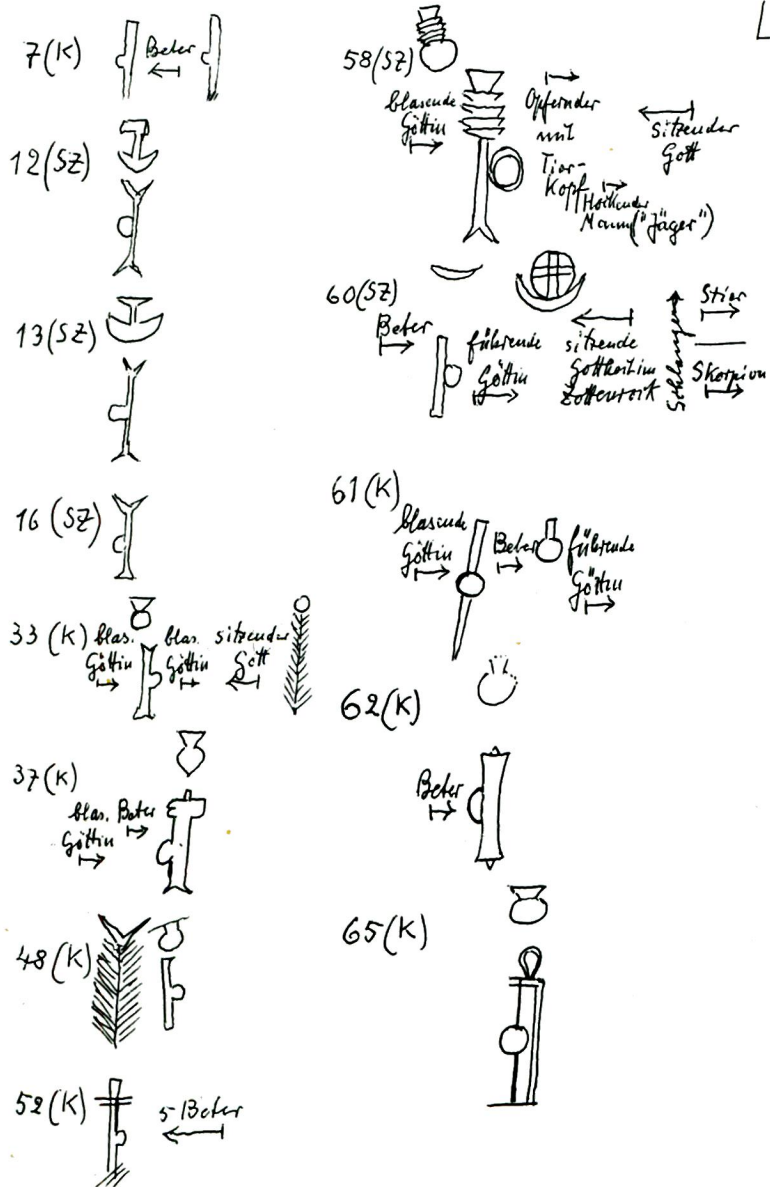 7(K)
Beter
12(SZ)
13(SZ)
16(SZ)
33(K)
blas.
Göttin
blas.
Göttin
sitzender
Gott
37(K)
blas.
Göttin
Beter
48(K)
52(K)
5 Beter
58(SZ)
blasende
Göttin
Opfernder
mit
Tier-
Kopf
Hockender
Mann ("Jäger")
sitzender
Gott
60(SZ)
Beter
führende
Göttin
sitzende
Gottheit im
Zottenrock
Schlangen
Stier
Skorpion
61(K)
blasende
Göttin
Beter
führende
Göttin
62(K)
Beter
65(K)